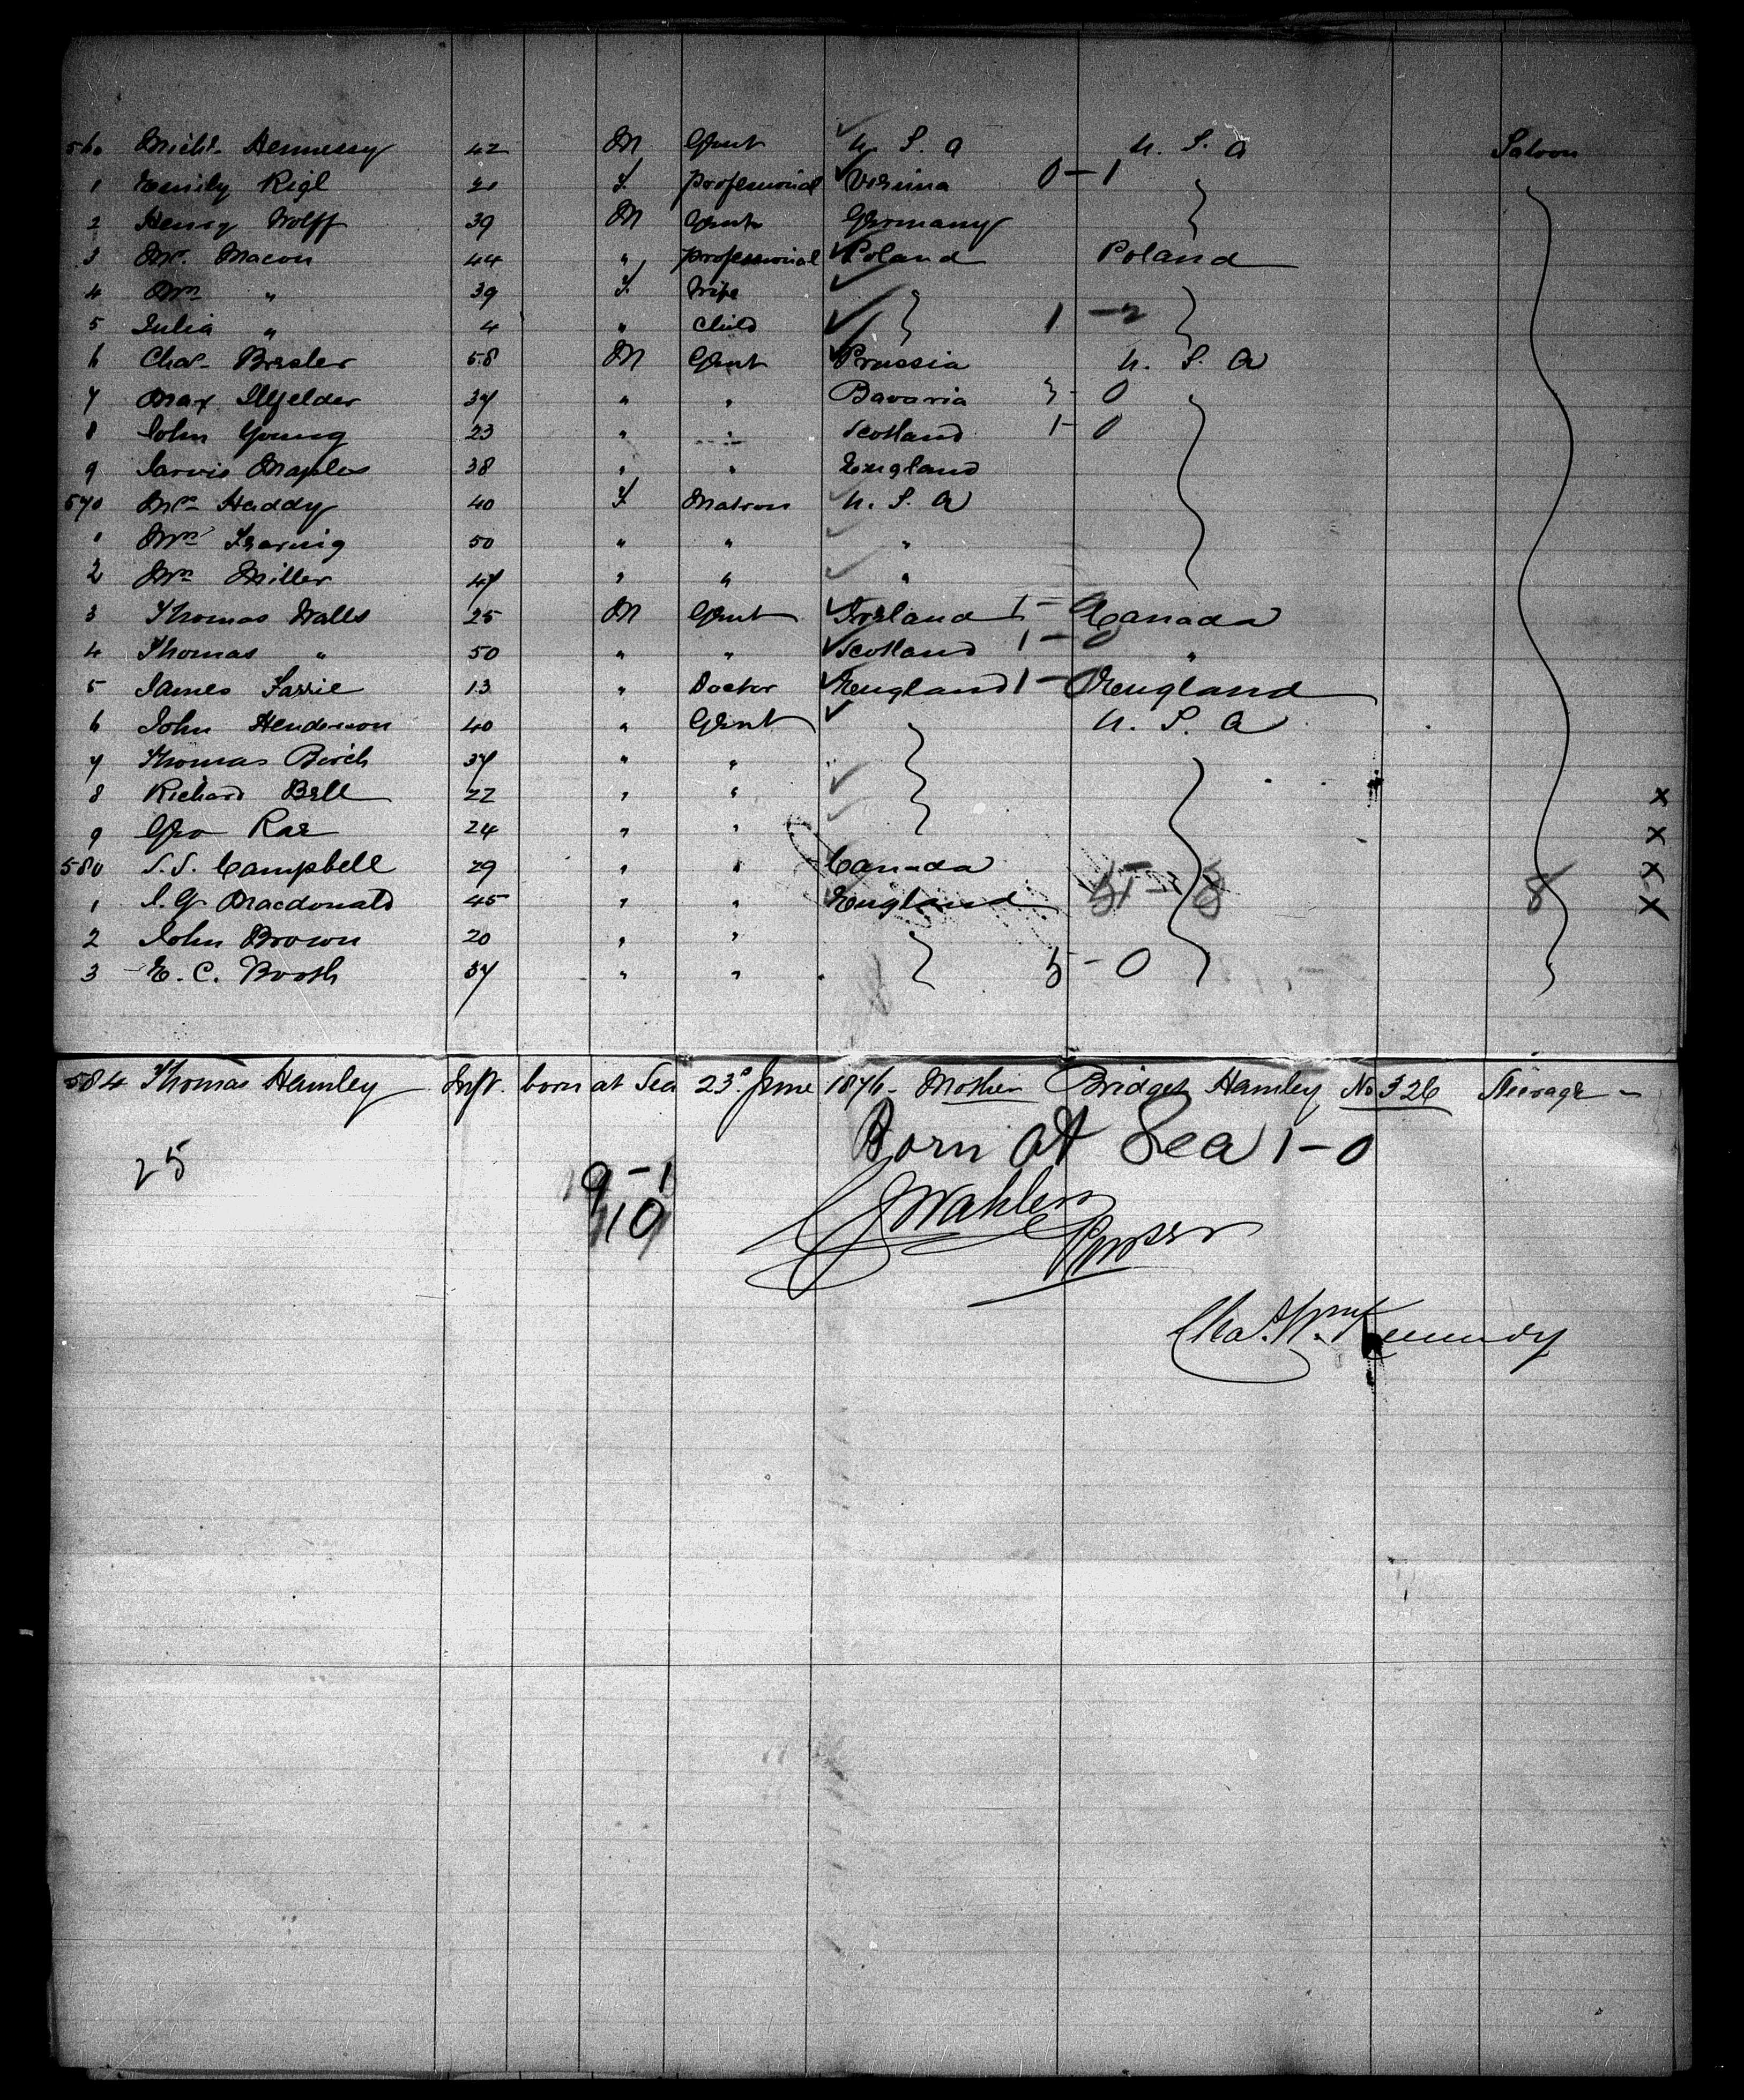 560 Michl. Hennessy 42 M Gent U. S. A U. S. A Saloon
1 Emily Rigl 21 F. professional Vienna 0-1
2 Henry Wolff 39 M Gent Germany
3 Mr. Macon 44 " professional Poland Poland
4 Mrs " 39 F. Wife
5 Julia " 4 " Child 1 - 2
6 Chas. Bresler 58 M Gent Prussia U. S. A
7 Max Illfelder 37 " " Bavaria 3 - 0
8 John Young 23 " " Scotland 1 - 0
9 Jarvis Maples 38 " " England
570 Mrs Haddy 40 F Matron U. S. A
1 Mrs 50 " " "
2 Mrs Miller 47 " " "
3 Thomas Walls 25 M Gent Ireland 1 - Canada
4 Thomas " 50 " " Scotland 1 - 0 "
5 James Farrie 13 " Doctor England 1 - England
6 John Henderson 40 " Gent U. S. A
7 Thomas Birch 37 " " "
8 Richard Bell 22 " " x
9 Geo Rae 24 " " x
580 S. S. Campbell 29 " " Canada x
1 J. G. Macdonald 45 " " England 51 - 8 8 x
2 John Brown 20 " "
3 E. C. Booth 37 " " 5 - 0
584 Thomas Hamley Inft. born at Sea 23d June 1876 - Mother Bridget Hamley No 326 Steerage -
Born at Sea 1 - 0
25 9 - 1
10
Purser
Chas. Wm Kennedy